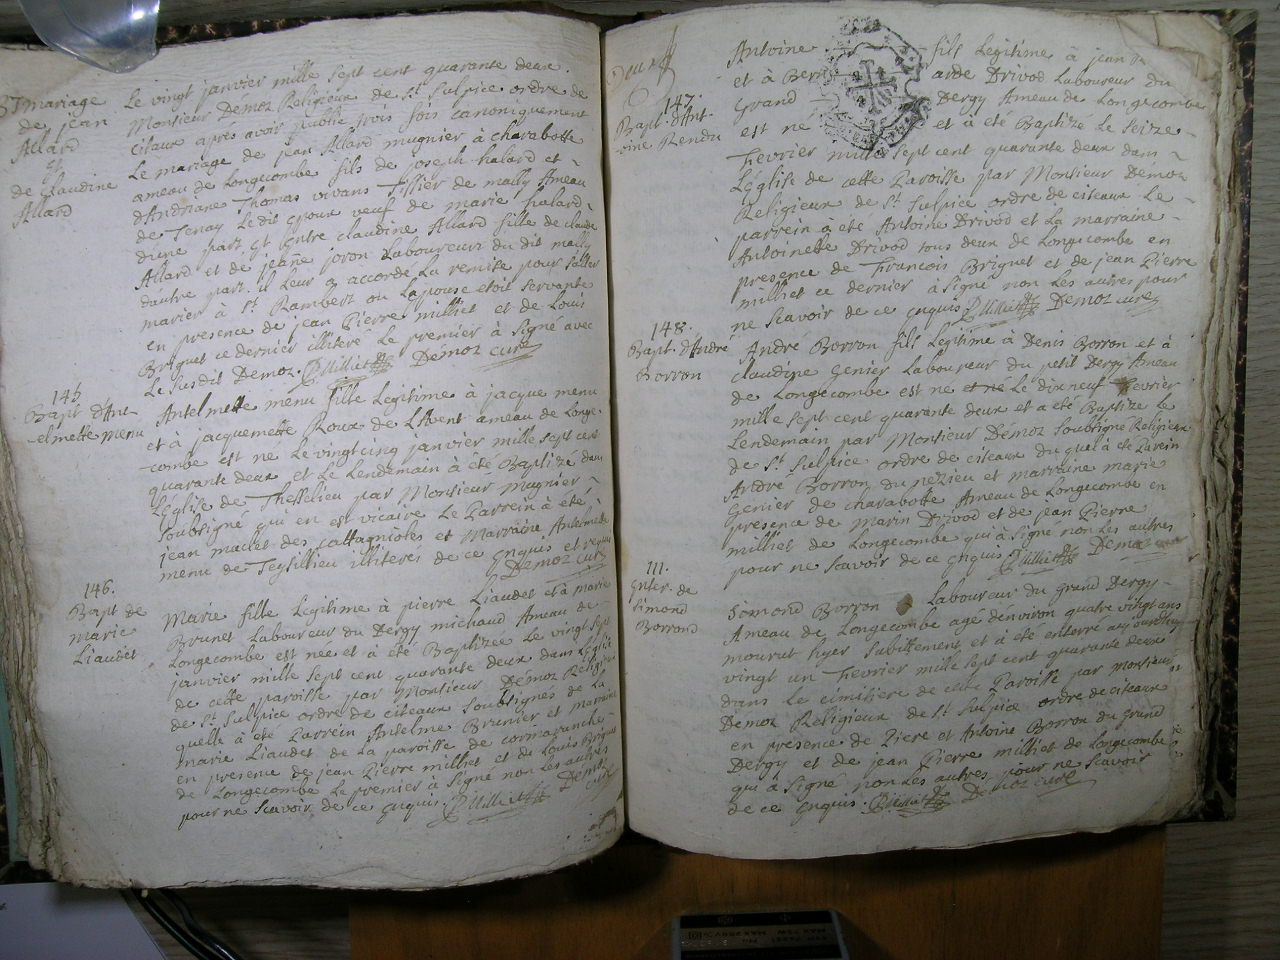 57 mariage
de jean
Allard
et
de Claudine
Allard
Le vingt janvier mille sept cent quarante deux
Monsieur Demoz Religieux de St Sulpice ordre de
Citaux apres avoir publié trois fois canoniquement
Le mariage de jean Allard mugnier à charabotte
ameau de Longecombe fils de joseph halard et
d'Andriane Thomas vivans Tissier de mally Ameau
de Tenay Ledit Epoux veuf de marie halard
d'une part Et Entre claudine Allard fille de claude
Allard et de jeane joron Laboureurs du dit mally
dautre part il Leur a accordé La remise pour saller
marier à St Rambert ou Lepouse etoit servante
en presence de jean Pierre milliet et de Louis
Briguet ce dernier illiteré Le premier à signé avec
Le susdit Demoz. PMilliet Demoz curé
145
Bapt d'Ant-
elmette menu
Antelmette menu fille Legitime à jacque menu
et à jacquemette Roux de LAvent ameau de Longe-
combe est né Le vingt cinq janvier mille sept cent
quarante deux et Le Lendemain à eté Baptizé dans
L'église de Thessilieu par Monsieur Mugnier
soubsigné qui en est vicaire Le Parrein à eté
jean maclet des cattagnioles et Marraine Antelmette
menu de Teysillieu illiterés de ce Enquis et requis
Demoz curé
146.
Bapt de
marie
Liaudet
Marie fille Legitime à pierre Liaudet et à marie
Brunet Laboureur du Dergy michaud Ameau de
Longecombe est neé et à été Baptizeé Le vingt sept
janvier mille sept cent quarante deux dans L'église
de cette paroisse par Monsieur Demoz Religieux
de St Sulpice ordre de citeaux soubsignés de La
quelle à été Parrein Antelme Brunier et marraine
marie Liaudet de La paroisse de cormaranche
en presence de jean Pierre milliet et de Louis Briguet
de Longecombe Le premier à signé non Les autres
pour ne scavoir de ce Enquis. PMilliet Demoz
curé
147.
Bapt. d'Ant-
oine Rendu
Antoine fils Legitime à jean
et à arde Drivod Laboureur du
Grand Dergy Ameau de Longecombe
est né et à été Baptizé Le seize
Fevrier mille sept cent quarante deux dans
L'église de cette Paroisse par Monsieur Demoz
Religieux de St Sulpice ordre de citeaux Le
parrein à été Antoine Drivod et La marraine
Antoinette Drivod tous deux de Longecombe en
presence de Francois Briguet et de jean Pierre
milliet ce dernier à signé non Les autres pour
ne scavoir de ce Enquis PMilliet Demoz curé
148.
Bapt. d'André
Borron
André Borron fils Legitime à Denis Borron et à
claudine Genier Laboureur du petit Dergy Ameau
de Longecombe est né et né Le dixneuf Fevrier
mille sept cent quarante deux et a eté Baptize Le
Lendemain par Monsieur Démoz soubsigné Religieux
de St Sulpice ordre de citeaux du quel à eté Parein
André Borron du nezieu et marraine marie
Genier de charabotte Ameau de Longecombe en
presence de Marin Drivod et de jean Pierre
milliet de Longecombe qui à signé non Les autres
pour ne scavoir de ce Enquis PMilliet Demoz
111.
Enter. de
Simond
Borrond
Simond Borron Laboureur du Grand Dergy
Ameau de Longecombe agé denviron quatre vingt ans
mourut hyer subittement et à eté enterré aujourdhuy
vingt un Fevrier mille sept cent quarante deux
dans Le cimitiere de cette Paroisse par Monsieur
Demoz Religieux de St Sulpice ordre de citeaux
en presence de Piere et Antoine Borron du Grand
Dergy et de jean Pierre milliet de Longecombe
qui à signé non Les autres pour ne scavoir
de ce Enquis. PMilliet Demoz curé